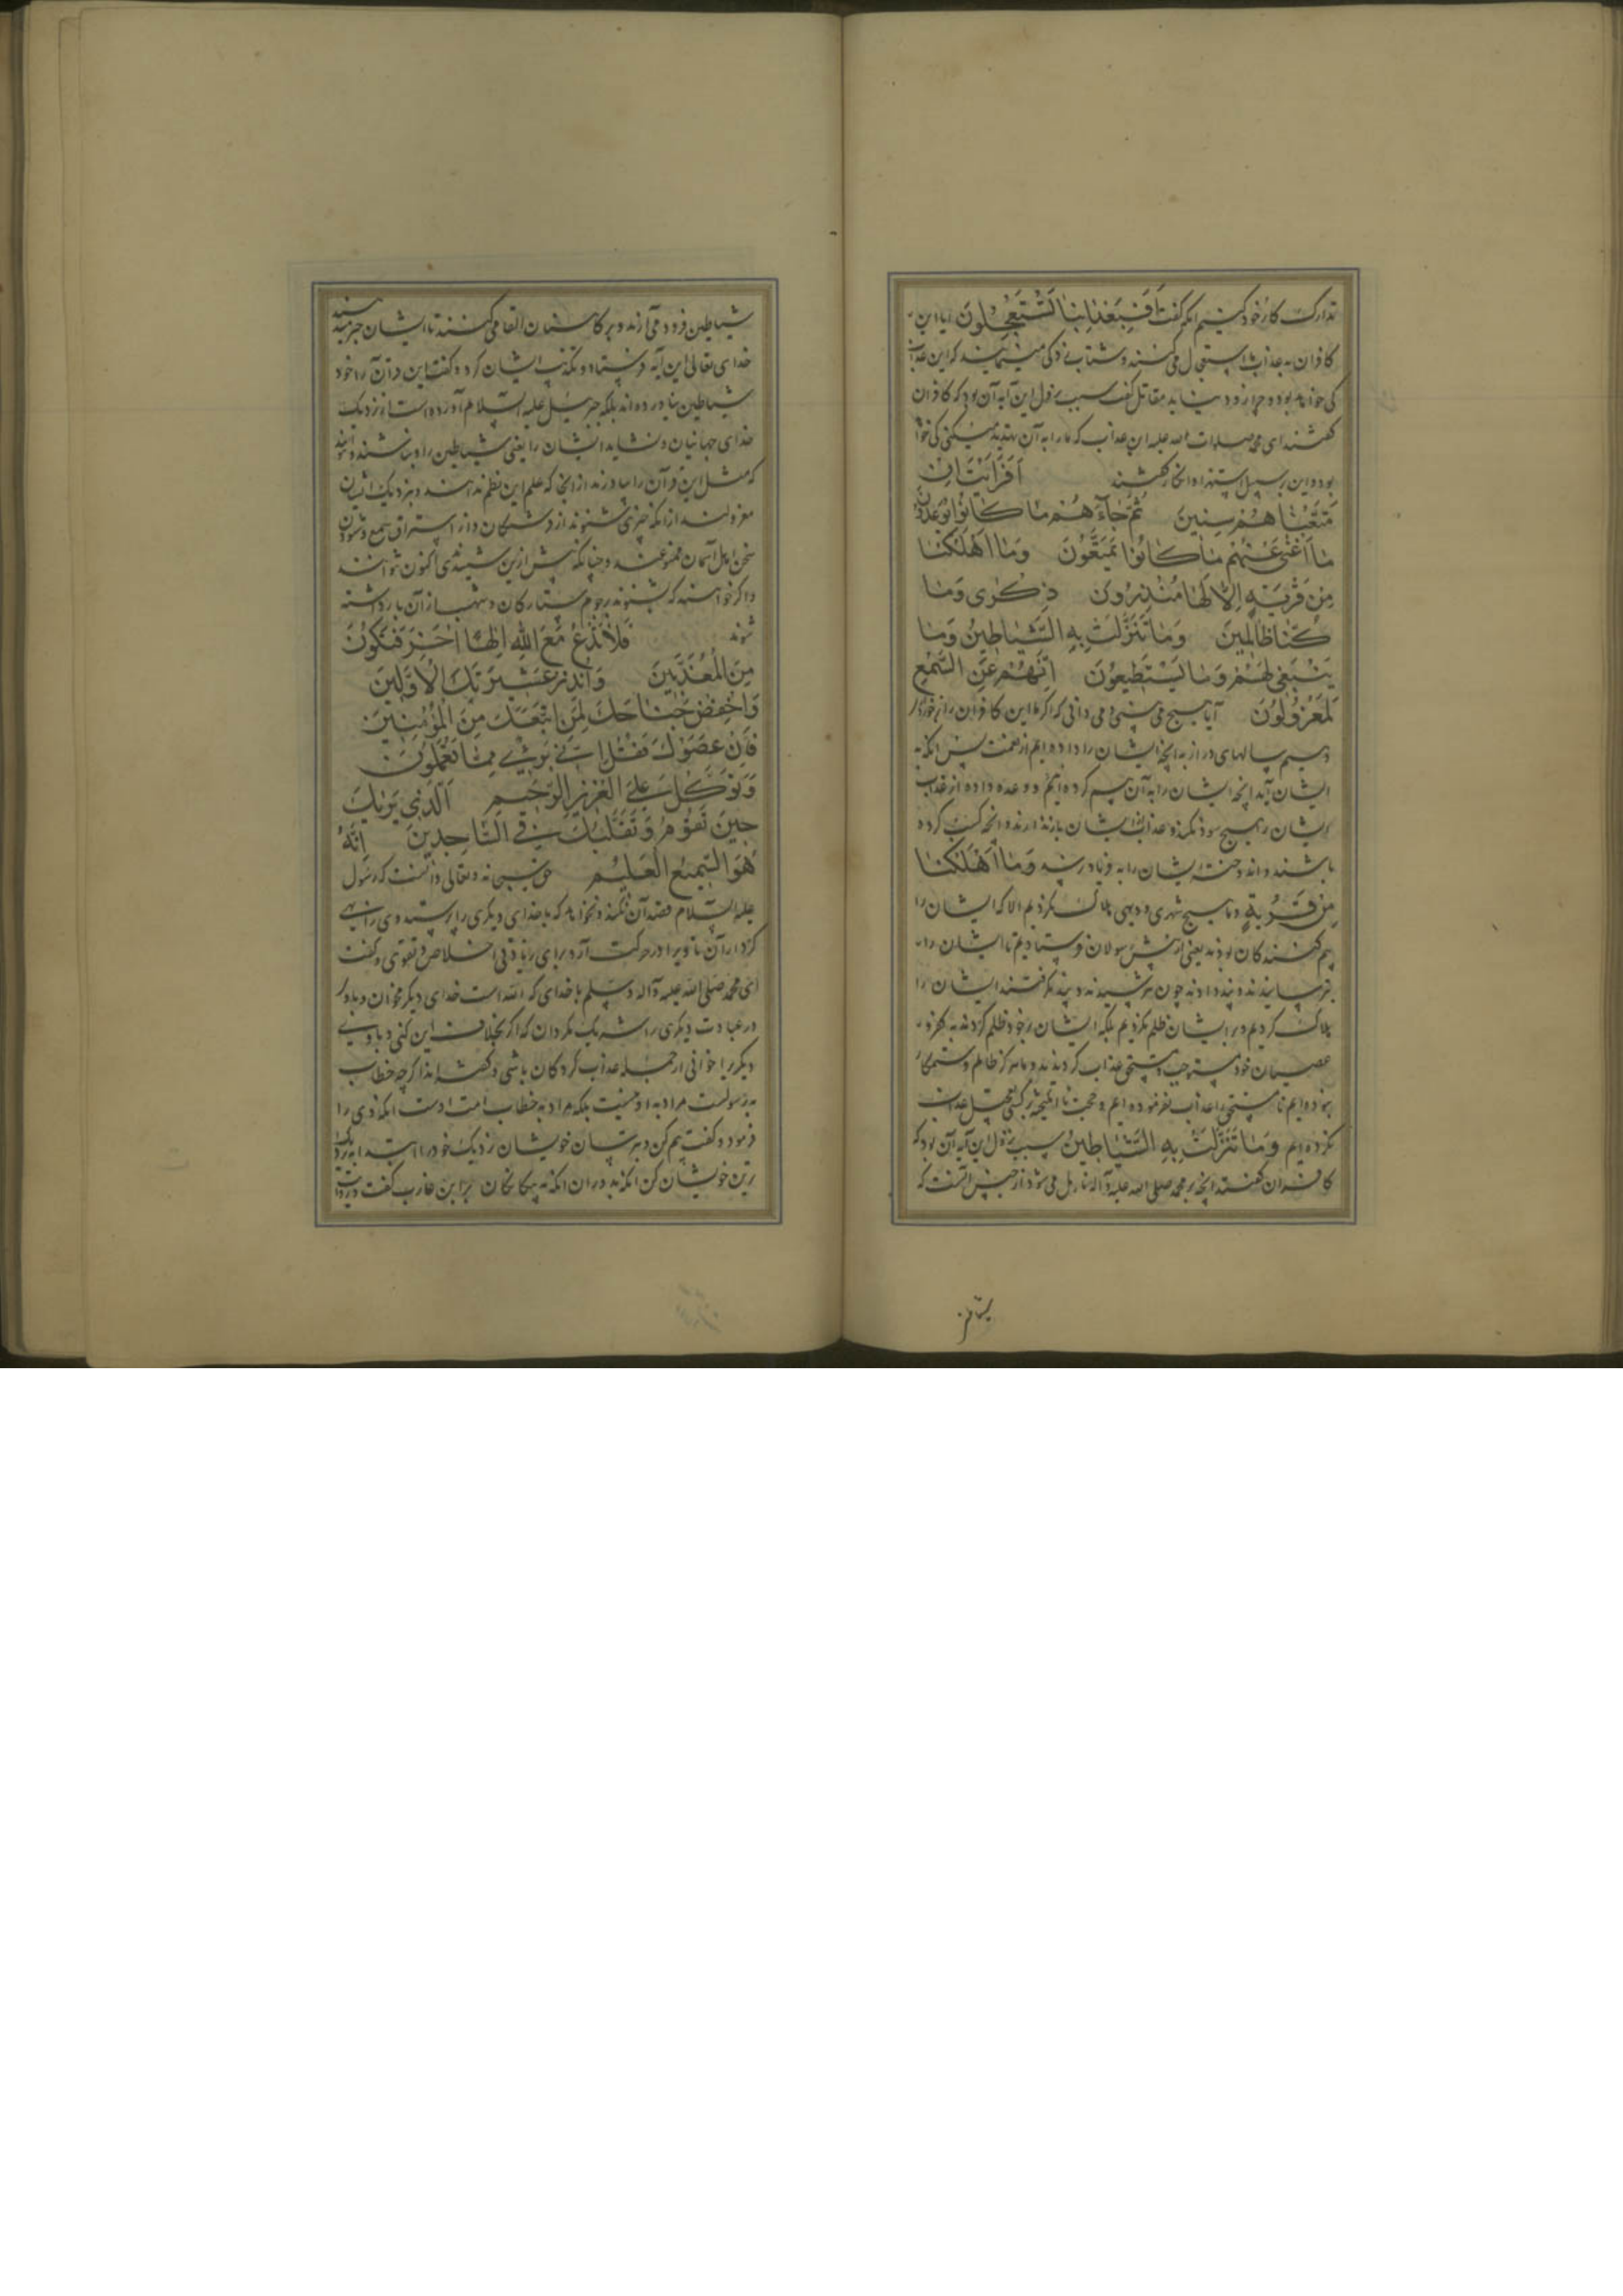 تدارک کار خود کنیم انکه گفت اَفَبِعَذابِنا لَتَسْتَعْجِلُونَ ایا این
کافران به عذاب ما استعجال می کنند و شتاب زدگی مینمایند که این عذاب
کی خواهد بود و چرا زود نیاید مقاتل گفت سبب نزول این آیه آن بود که کافران
گفتند ای محمد صلوات الله علیه این عذاب که ما را به آن تهدید میکنی کی خواهد
بود و این بر سبیل استهزا و انکار گفتند اَفَرَاَیْتَ اِنْ
مَتَّعْناهُمْ سِنِینَ ثُمَّ جاءَهُمْ ما کانُوا یُوعَدُونَ
ما اَغْنی عَنْهُمْ ما کانُوا یُمَتَّعُونَ وَما اَهْلَکْنا
مِنْ قَرْیَةٍ اِلّا لَها مُنْذِرُونَ ذِکْری وَما
کُنّا ظالِمِینَ وَما تَنَزَّلَتْ بِهِ الشَّیاطِینُ وَما
یَنْبَغِی لَهُمْ وَما یَسْتَطِیعُونَ اِنَّهُمْ عَنِ السَّمْعِ
لَمَعْزُولُونَ آیا هیچ می بینی و می دانی که اگر ما این کافران را برخوردار
دهیم سالهای دراز به انچه ایشان را داده ایم از نعمت پس انکه به
ایشان آید انچه ایشان را به آن بیم کرده ایم و وعده داده از عذاب
ایشان را هیچ سود نکند و عذاب از ایشان باز ندارند و انچه کسب کرده
باشند و اندوخته ایشان را به فریاد نرسد وَما اَهْلَکْنا
مِنْ قَرْیَةٍ و ما هیچ شهری و دیهی هلاک نکردیم الا که ایشان را
بیم کنندکان بودند یعنی از پیش رسولان فرستادیم تا ایشان را
بترسانیدند و پند دادند چون نترسیدند و پند نگرفتند ایشان را
هلاک کردیم و بر ایشان ظلم نکردیم بلکه ایشان بر خود ظلم کردند به کفر و
عصیان خود مستوجب و مستحق عذاب کردیدند و ما هرکز ظالم و ستمکار
نبوده ایم نا مستحق را عذاب نفرموده ایم و حجت نا انکیخته بر کسی تعجیل عذاب
نکرده ایم وَما تَنَزَّلَتْ بِهِ الشَّیاطِینُ سبب نزول این آیه آن بود که
کافران گفتند انچه بر محمد صلی الله علیه و آله نازل می شود از جنس آنست که
شیاطین فرود می آرند و بر کاهنان القا می کنند تا ایشان خبر میدهند
خدای تعالی این آیه فرستاد و تکذیب ایشان کرد و گفت این قرآن را خود
شیاطین نیاورده اند بلکه جبرئیل علیه السلام آورده است از نزدیک
خدای جهانیان و نشاید ایشان را یعنی شیاطین را و نباشند و نتوانند
که مثل این قرآن را بیاورند از انجا که علم این نظم ندانند و به نزدیک ایشان
معزولند از انکه چیزی شنوند از فرشتکان و از استراق سمع و شنودن
سخن اهل آسمان ممنوعند و چنانکه پیش ازین شنیدندی اکنون نتوانند
و اکر خواهند که بشنوند رجوم ستارکان و شهب از آن باز داشته
شوند فَلا تَدْعُ مَعَ اللهِ اِلهًا اخَرَ فَتَکُونَ
مِنَ الْمُعَذَّبِینَ وَاَنْذِرْ عَشِیرَتَکَ الْاَوَّلِینَ
وَاخْفِضْ جَناحَکَ لِمَنِ اتَّبَعَکَ مِنَ الْمُؤْمِنِینَ
فَاِنْ عَصَوْکَ فَقُلْ اِنِّی بَرِیءٌ مِمّا تَعْمَلُونَ
وَتَوَکَّلْ عَلَی الْعَزِیزِ الرَّحِیمِ اَلَّذِی یَریکَ
حِینَ تَقُومُ وَتَقَلُّبَکَ فِی السّاجِدِینَ اِنَّهُ
هُوَ السَّمِیعُ الْعَلِیمُ حق سبحانه و تعالی دانست که رسول
علیه السلام قصد آن نکند و نخواهد که با خدای دیکری را پرستد وی را نهی
کرد از آن تا ویرا در حرکت آرد برای زیادتی اخلاص و تقوی و گفت
ای محمد صلی الله علیه و آله و سلم با خدای که الله است خدای دیکر مخوان و با او
در عبادت دیکری را شریک مکردان که اکر بخلاف این کنی و با وی
دیکری را خوانی از جمله عذاب کردکان باشی و گفته اند اکرچه خطاب
به رسولست مراد به او نیست بلکه مراد به خطاب امت اوست انکه وی را
فرمود و گفت بیم کن و بترسان خویشان نزدیک خود را ابتدا به نزدیک
ترین خویشان کن انکه به دوران انکه به بیکانکان براء بن عازب گفت در وقت